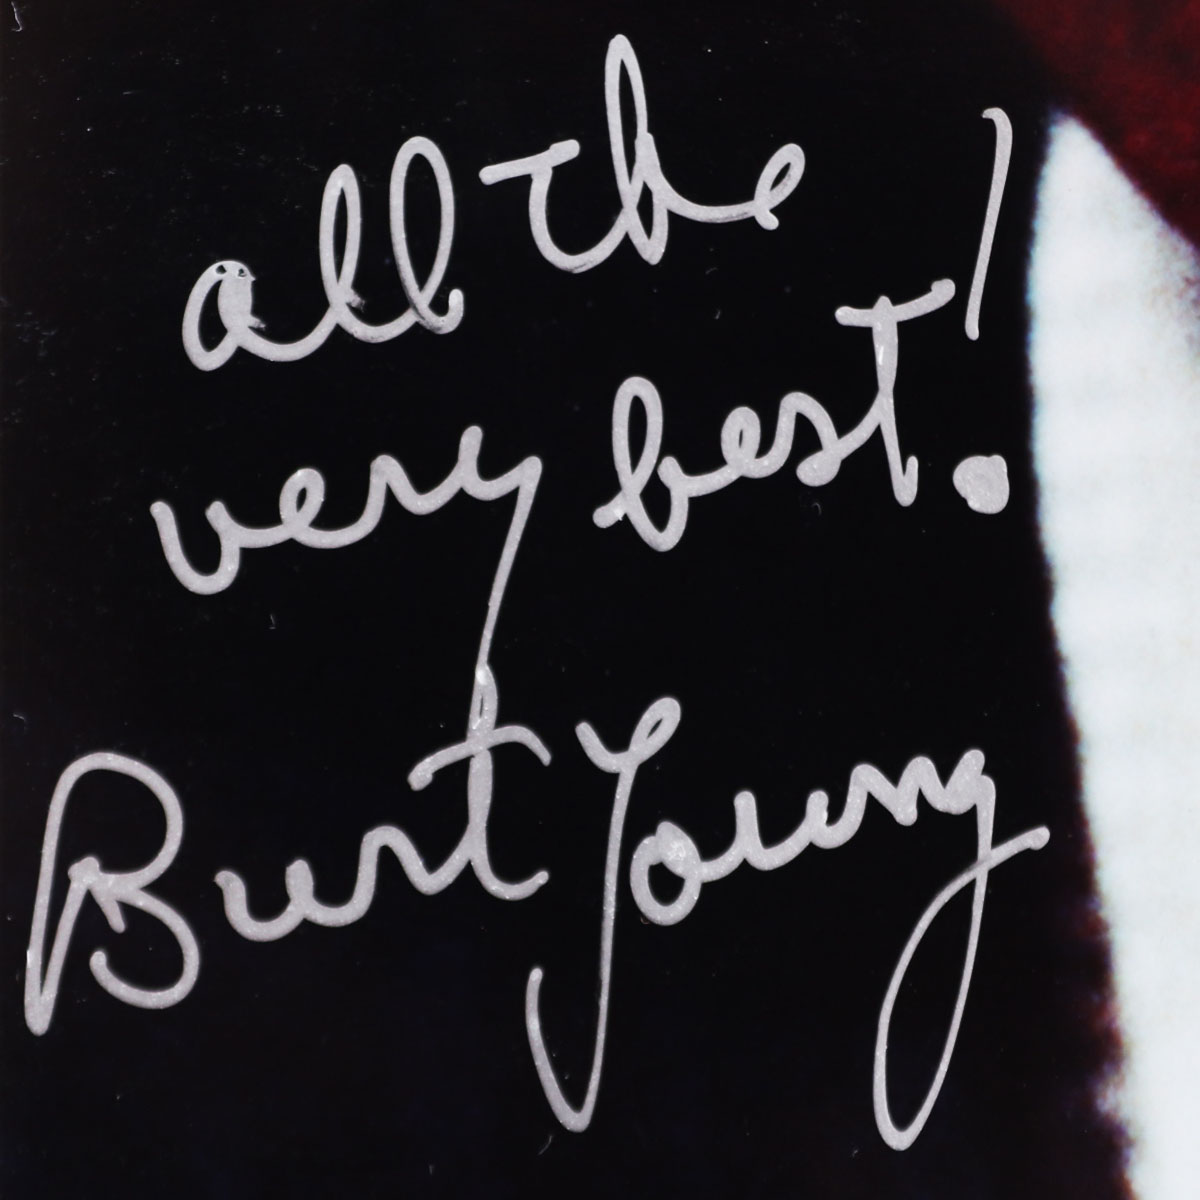 all the
very best!
Burt Young